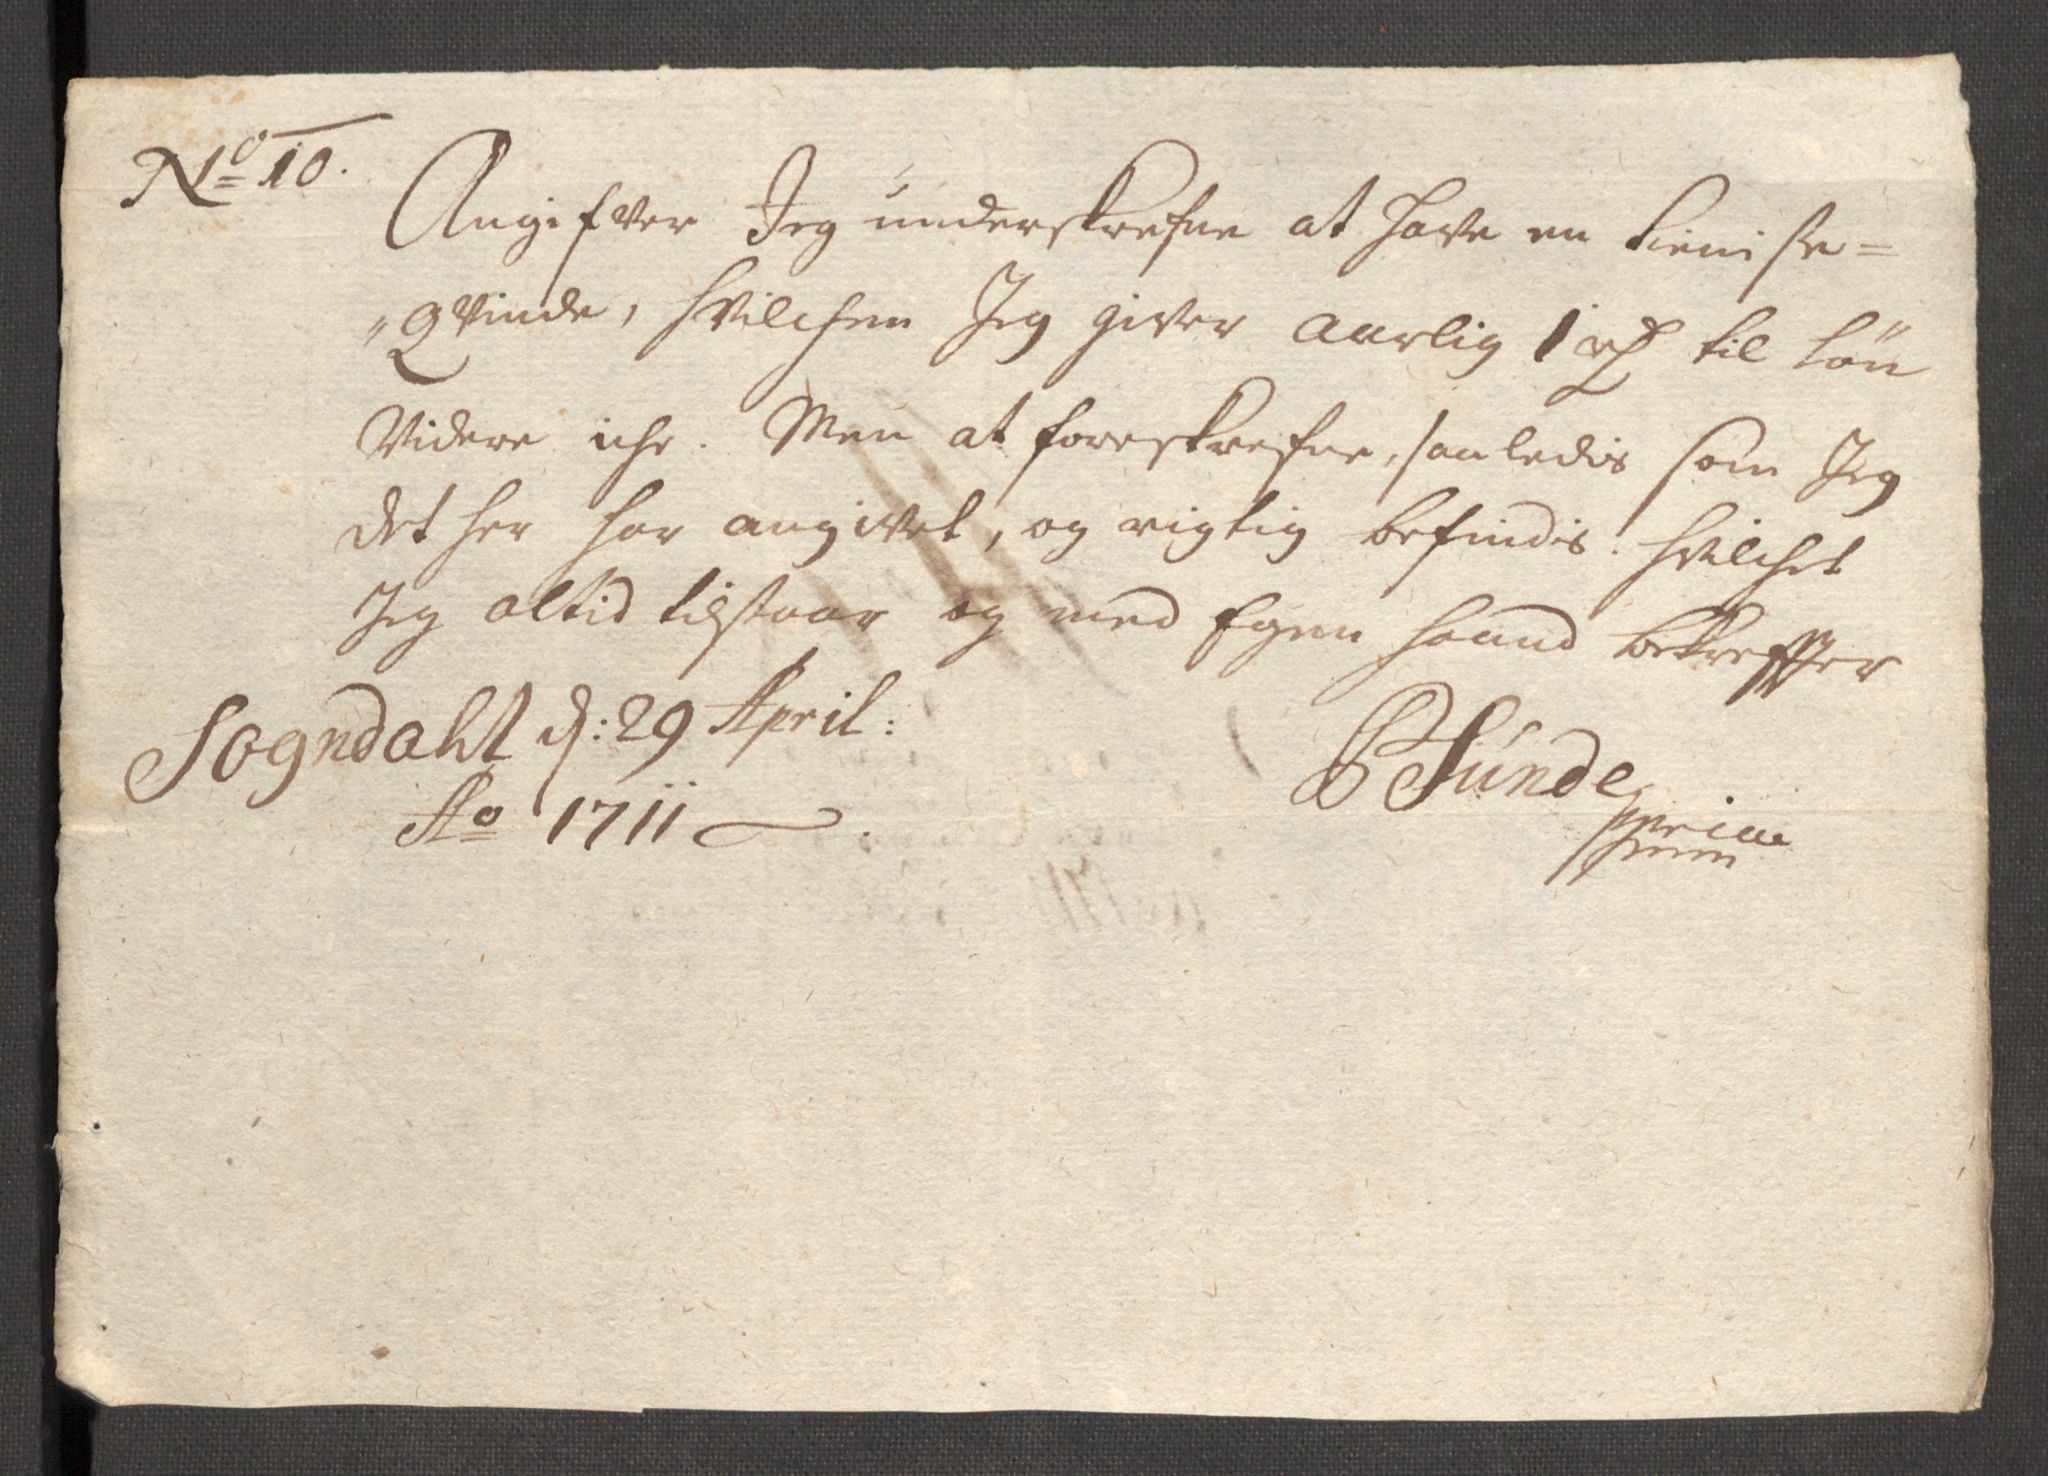 No 10.
Angifver Jeg underskrefne at have en tieniste=
„Qvinde, hvilchen Jeg giver aarlig 1 rd til løn
Videre iche. Men at foreskrefne, saaledis som Jeg
det her har angivet, og rigtig befindis. hvilchet
Jeg altid tilstaar og med Egen haand bekreffter
Sogndahl d: 29 April:
Ao 1711
B Sunde